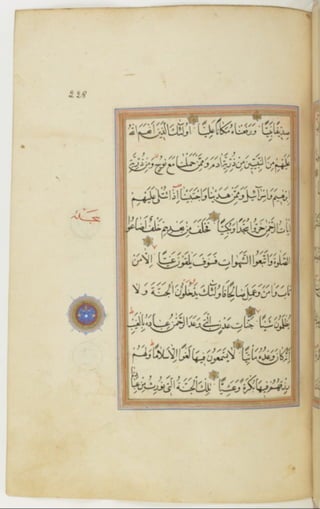 228
صديقا نبيا ورفعناه مكانا عليا اولئك الذين انعم الله
عليهم من النبيين من ذرية آدم وممن حملنا مع نوح ومن ذرية
ابرهيم واسرائيل وممن هدينا واجتبينا اذا تتلى عليهم
آيات الرحمن خروا سجدا وبكيا فخلف من بعدهم خلف اضاعوا
سجده
الصلوة واتبعوا الشهوات فسوف يلقون غيا الا من
تاب وآمن وعمل صالحا فاولئك يدخلون الجنة ولا
يظلمون شيئا جنات عدن التي وعد الرحمن عباده بالغيب
انه كان وعده مأتيا لا يسمعون فيها لغوا الا سلاما ولهم
رزقهم فيها بكرة وعشيا تلك الجنة التي نورث من عبادنا